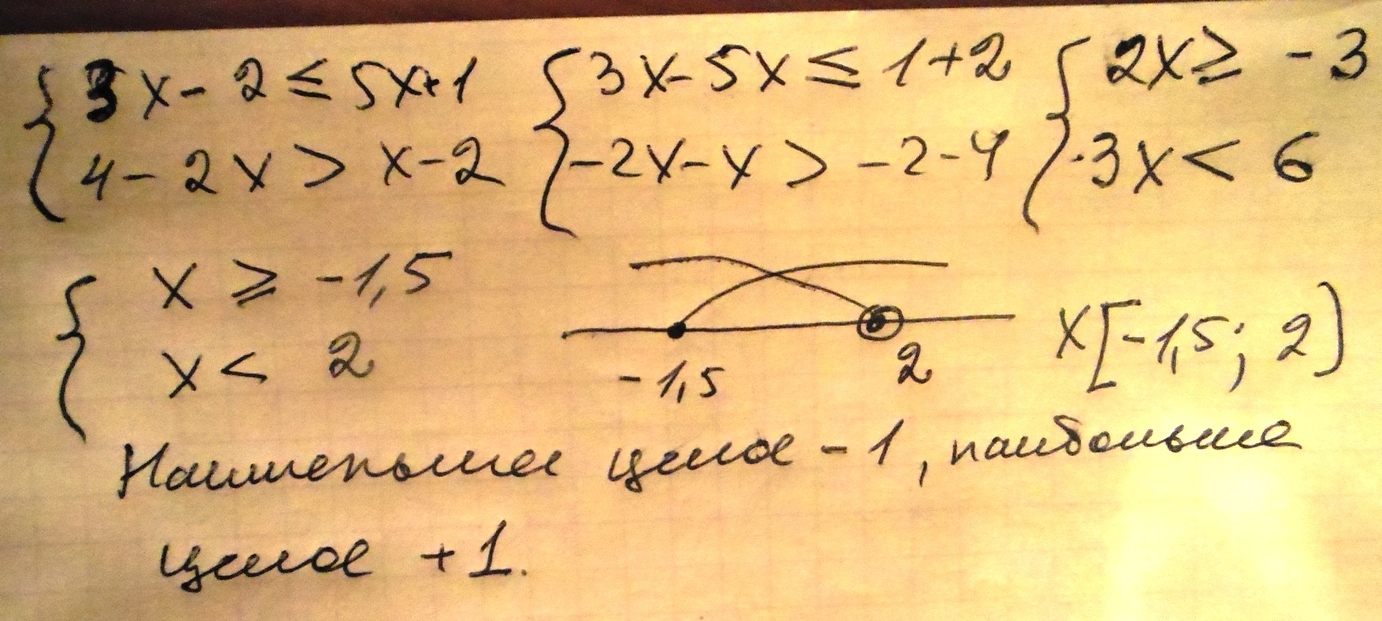 { 3x - 2 ≤ 5x+1 { 3x - 5x ≤ 1+2 { 2x ≥ -3
{ 4 - 2x > x - 2 { -2x - x > -2 - 4 { 3x < 6
{ x ≥ -1,5
{ x < 2
-1,5 2 x[-1,5; 2)
Наименьшее целое -1, наибольшее
целое +1.